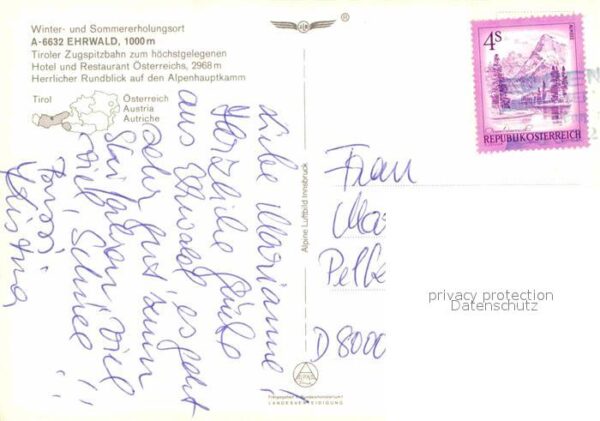 Winter- und Sommererholungsort
A-6632 EHRWALD, 1000 m
Tiroler Zugspitzbahn zum höchstgelegenen
Hotel und Restaurant Österreichs, 2968 m
Herrlicher Rundblick auf den Alpenhauptkamm
Tirol
Österreich
Austria
Autriche
Liebe Marianne!
Herzliche Grüße
aus Ehrwald, es geht
sehr gut zum
Skifahren, viel
viel Schnee!!
Christina
Alpine Luftbild Innsbruck
LANDESVERTEIDIGUNG
®
4S
REPUBLIK ÖSTERREICH
Frau
Ma
Pelk
D 8000
privacy protection
Datenschutz